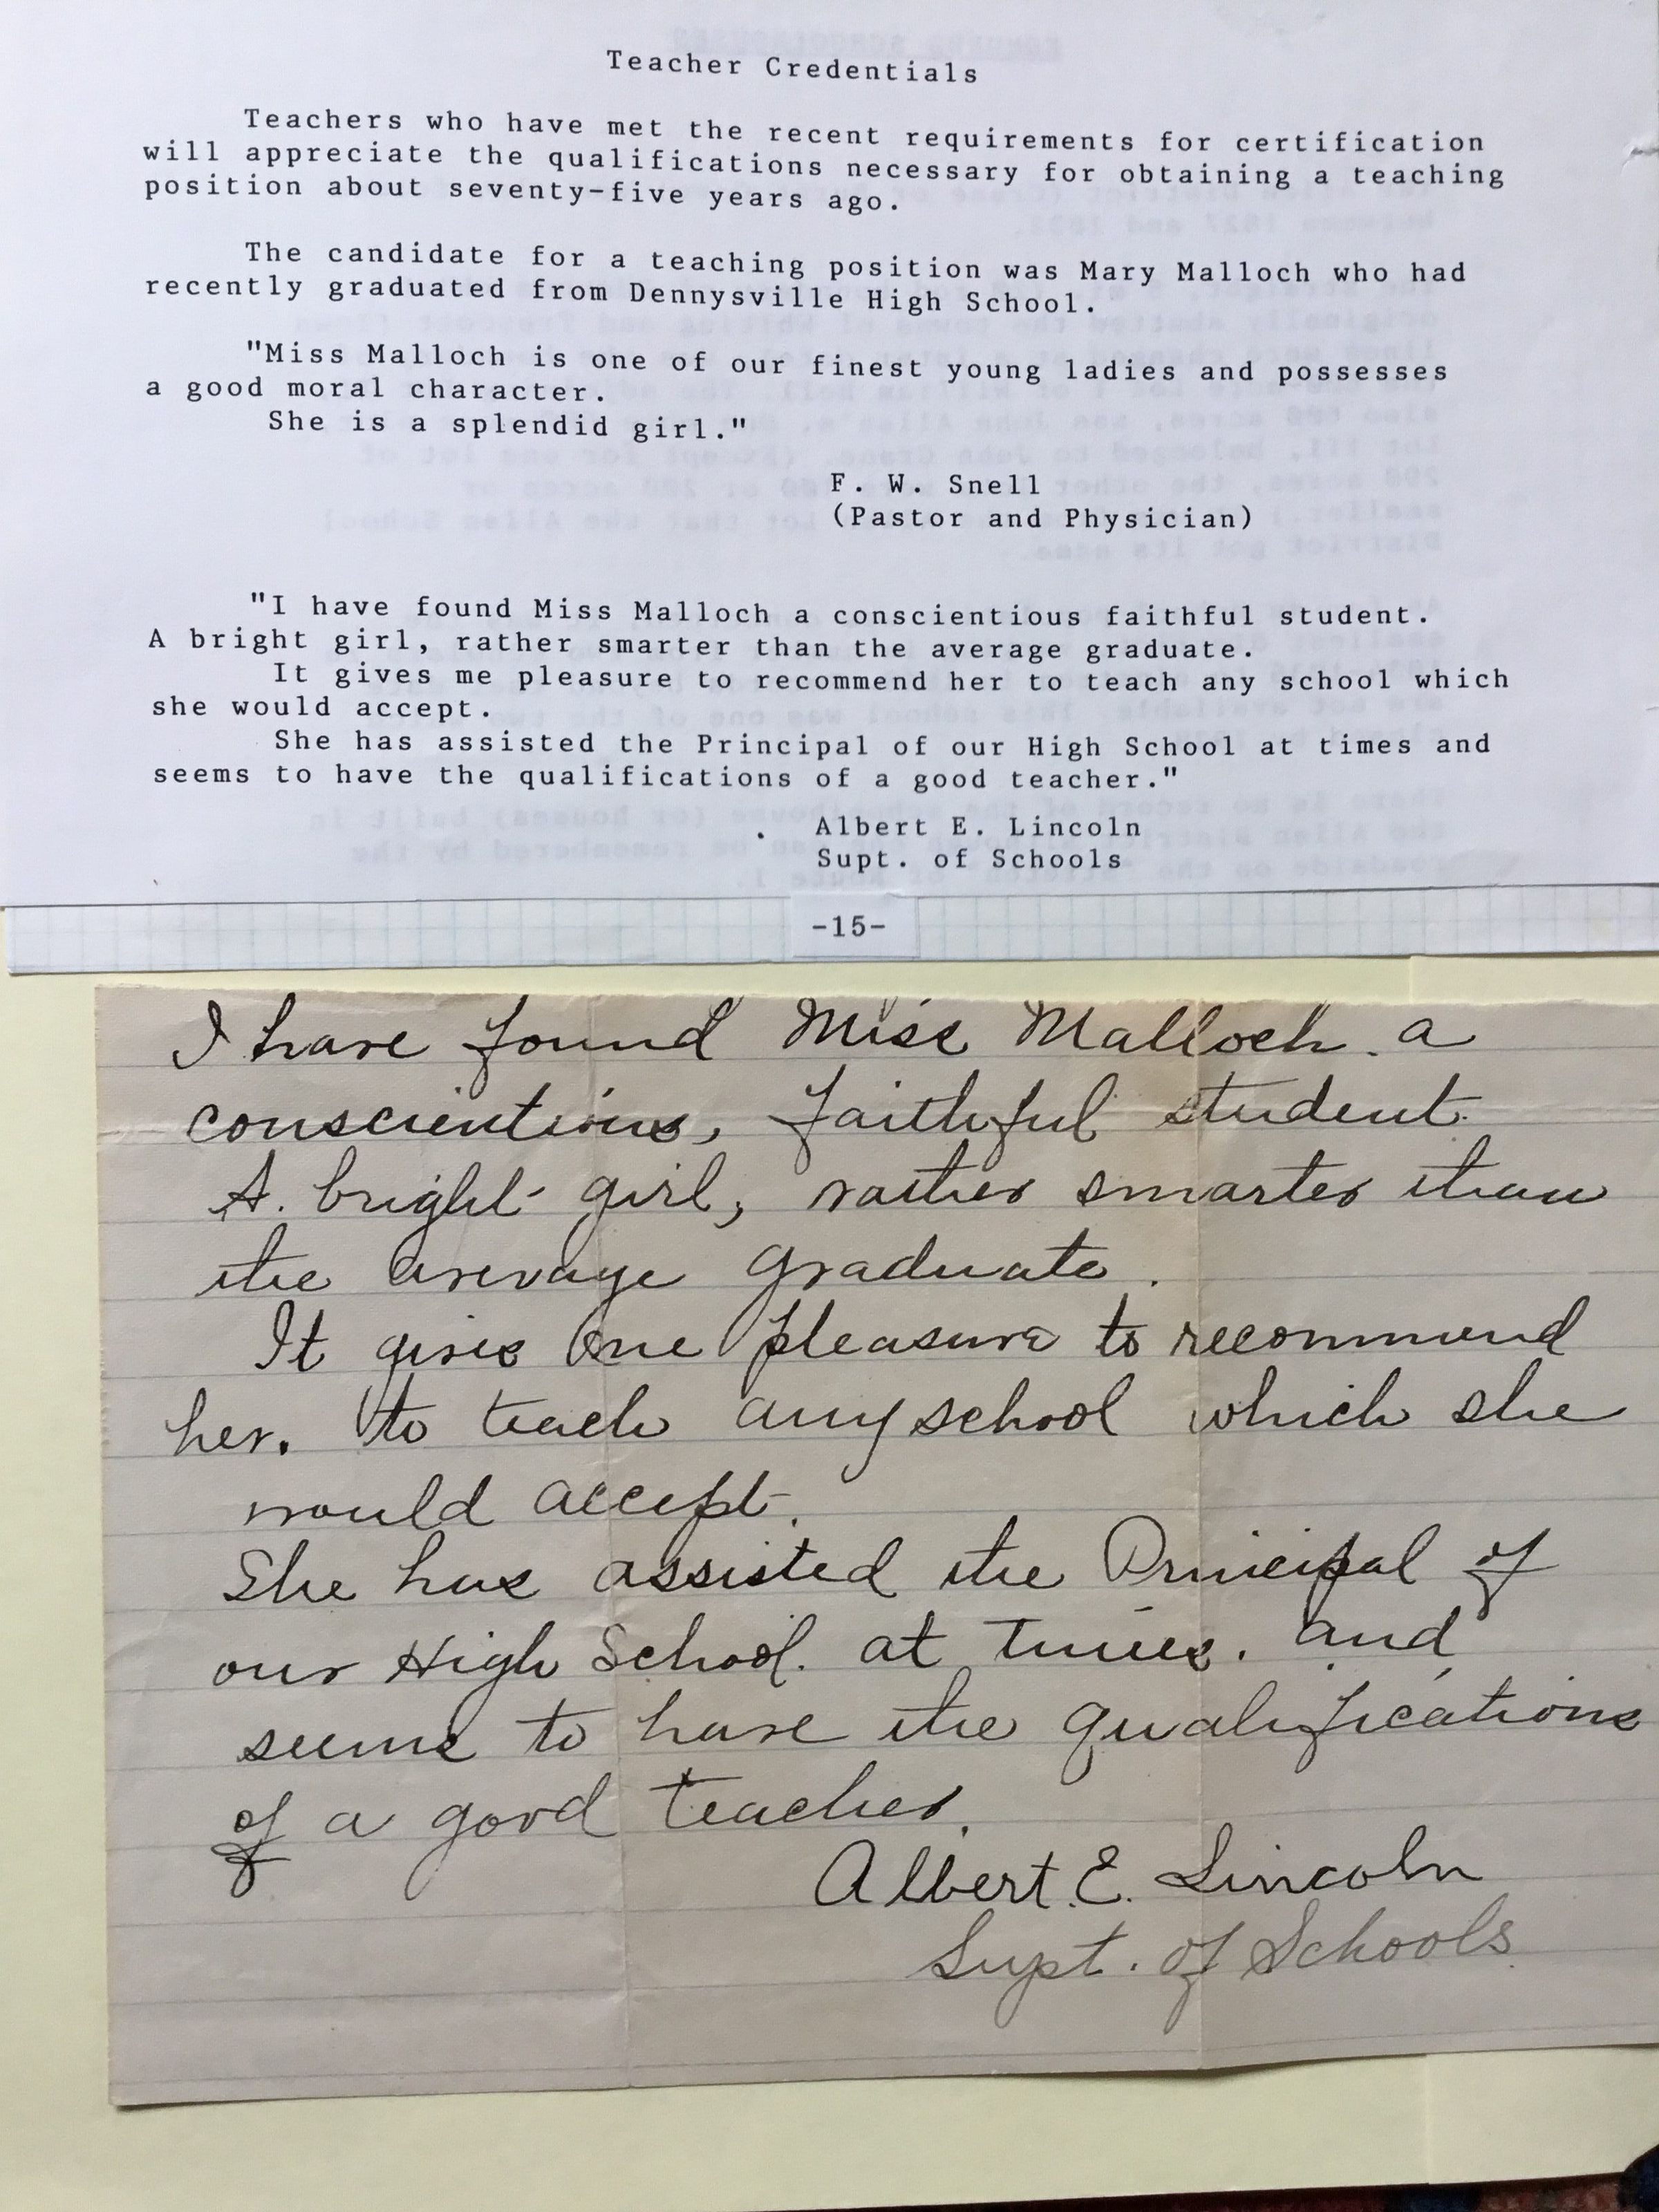 Teacher Credentials
Teachers who have met the recent requirements for certification
will appreciate the qualifications necessary for obtaining a teaching
position about seventy-five years ago.
The candidate for a teaching position was Mary Malloch who had
recently graduated from Dennysville High School.
"Miss Malloch is one of our finest young ladies and possesses
a good moral character.
She is a splendid girl."
F. W. Snell
(Pastor and Physician)
"I have found Miss Malloch a conscientious faithful student.
A bright girl, rather smarter than the average graduate.
It gives me pleasure to recommend her to teach any school which
she would accept.
She has assisted the Principal of our High School at times and
seems to have the qualifications of a good teacher."
Albert E. Lincoln
Supt. of Schools
-15-
I have found Miss Malloch. a
conscientious, faithful student.
A. bright girl, rather smarter than
the average graduate.
It gives me pleasure to recommend
her. to teach any school which she
would accept.
She has assisted the Principal of
our High School. at times. and
seems to have the qualifications
of a good teacher.
Albert E. Lincoln
Supt. of Schools